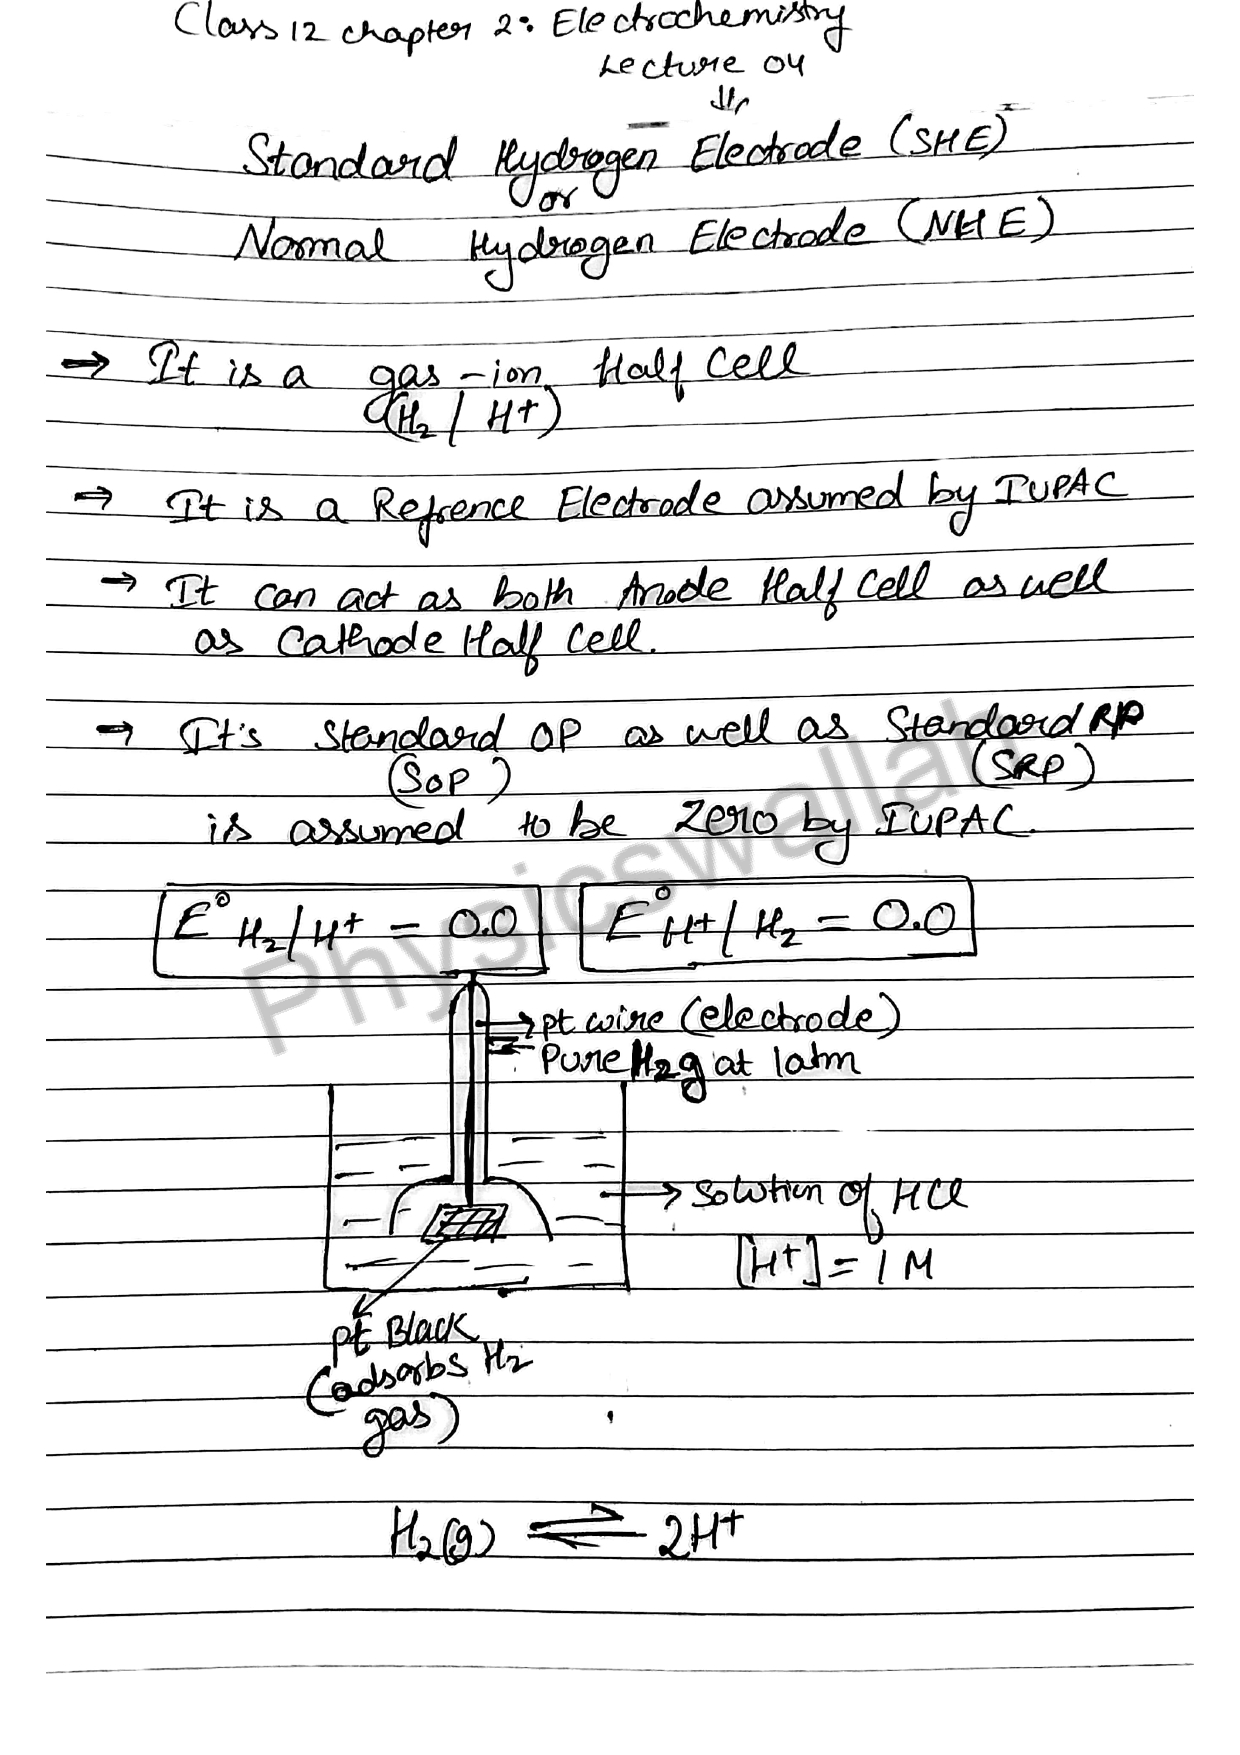 Class 12 chapter 2: Electrochemistry
Lecture 04
Standard Hydrogen Electrode (SHE)
or
Normal Hydrogen Electrode (NHE)
→ It is a gas-ion Half Cell
(H₂ / H+)
→ It is a Refrence Electrode assumed by IUPAC
→ It can act as both Anode Half Cell as well
as Cathode Half Cell.
→ It's Standard OP as well as Standard RP
(SOP) (SRP)
is assumed to be Zero by IUPAC.
E° H₂/H+ = 0.0 E° H+/H₂ = 0.0
→ pt wire (electrode)
Pure H₂g at 1atm
→ Solution of HCl
[H+] = 1 M
pt Black
(adsorbs H₂
gas)
H₂(g) ⇌ 2H+
Physicswallah